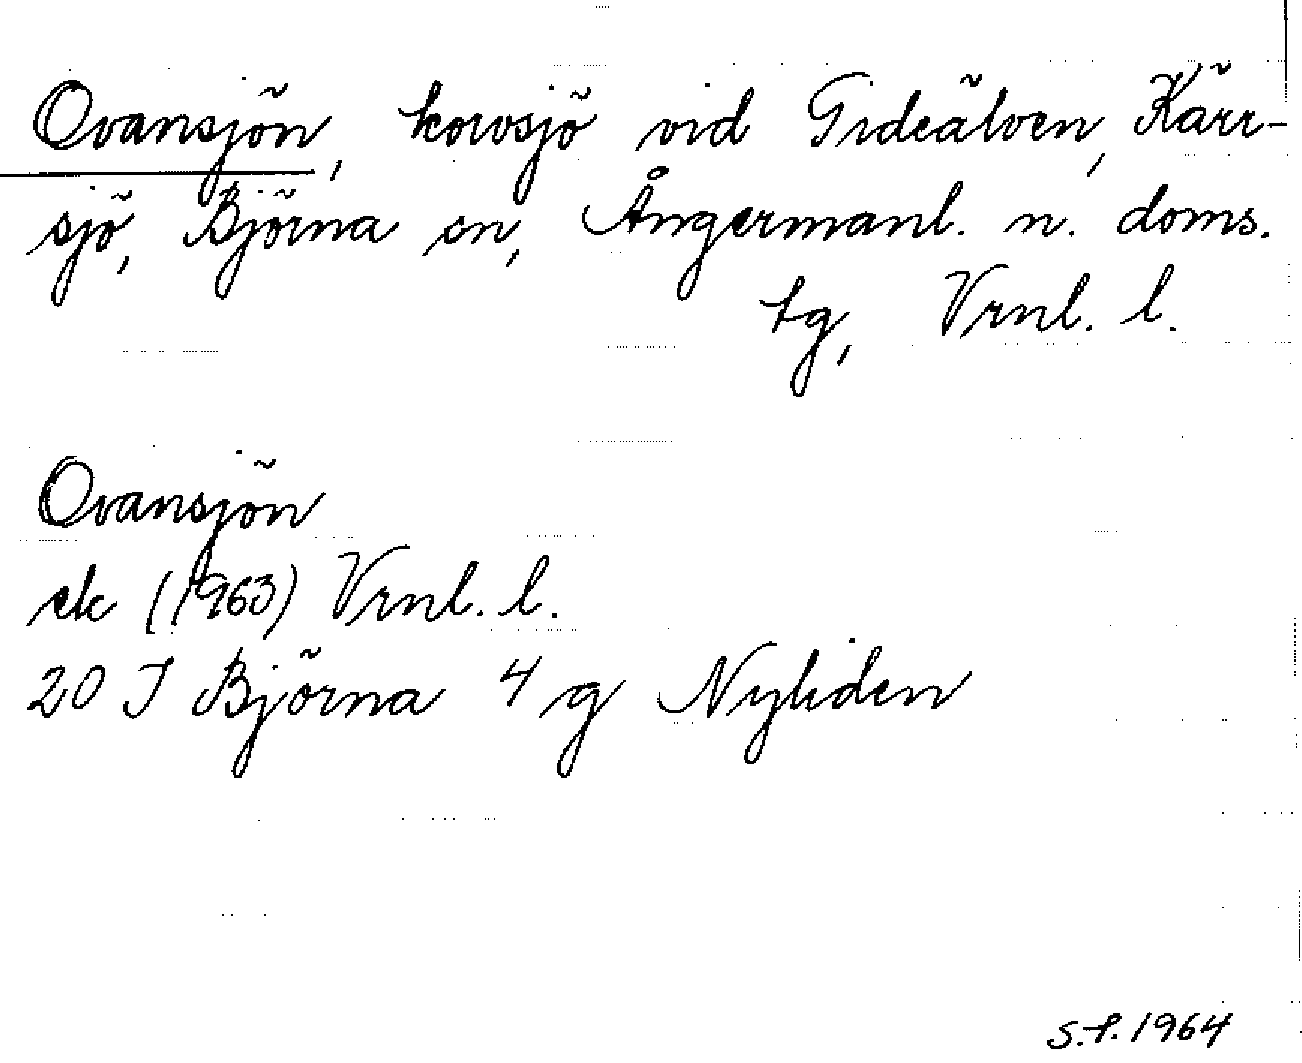 Ovansjön, korvsjö vid Gideälven, Kärr-
sjö, Björna sn, Ångermanl. n. doms.
tg, Vrnl. l.
Ovansjön
ek (1963) Vrnl. l.
20 I Björna 4 g Nyliden
S.P. 1964